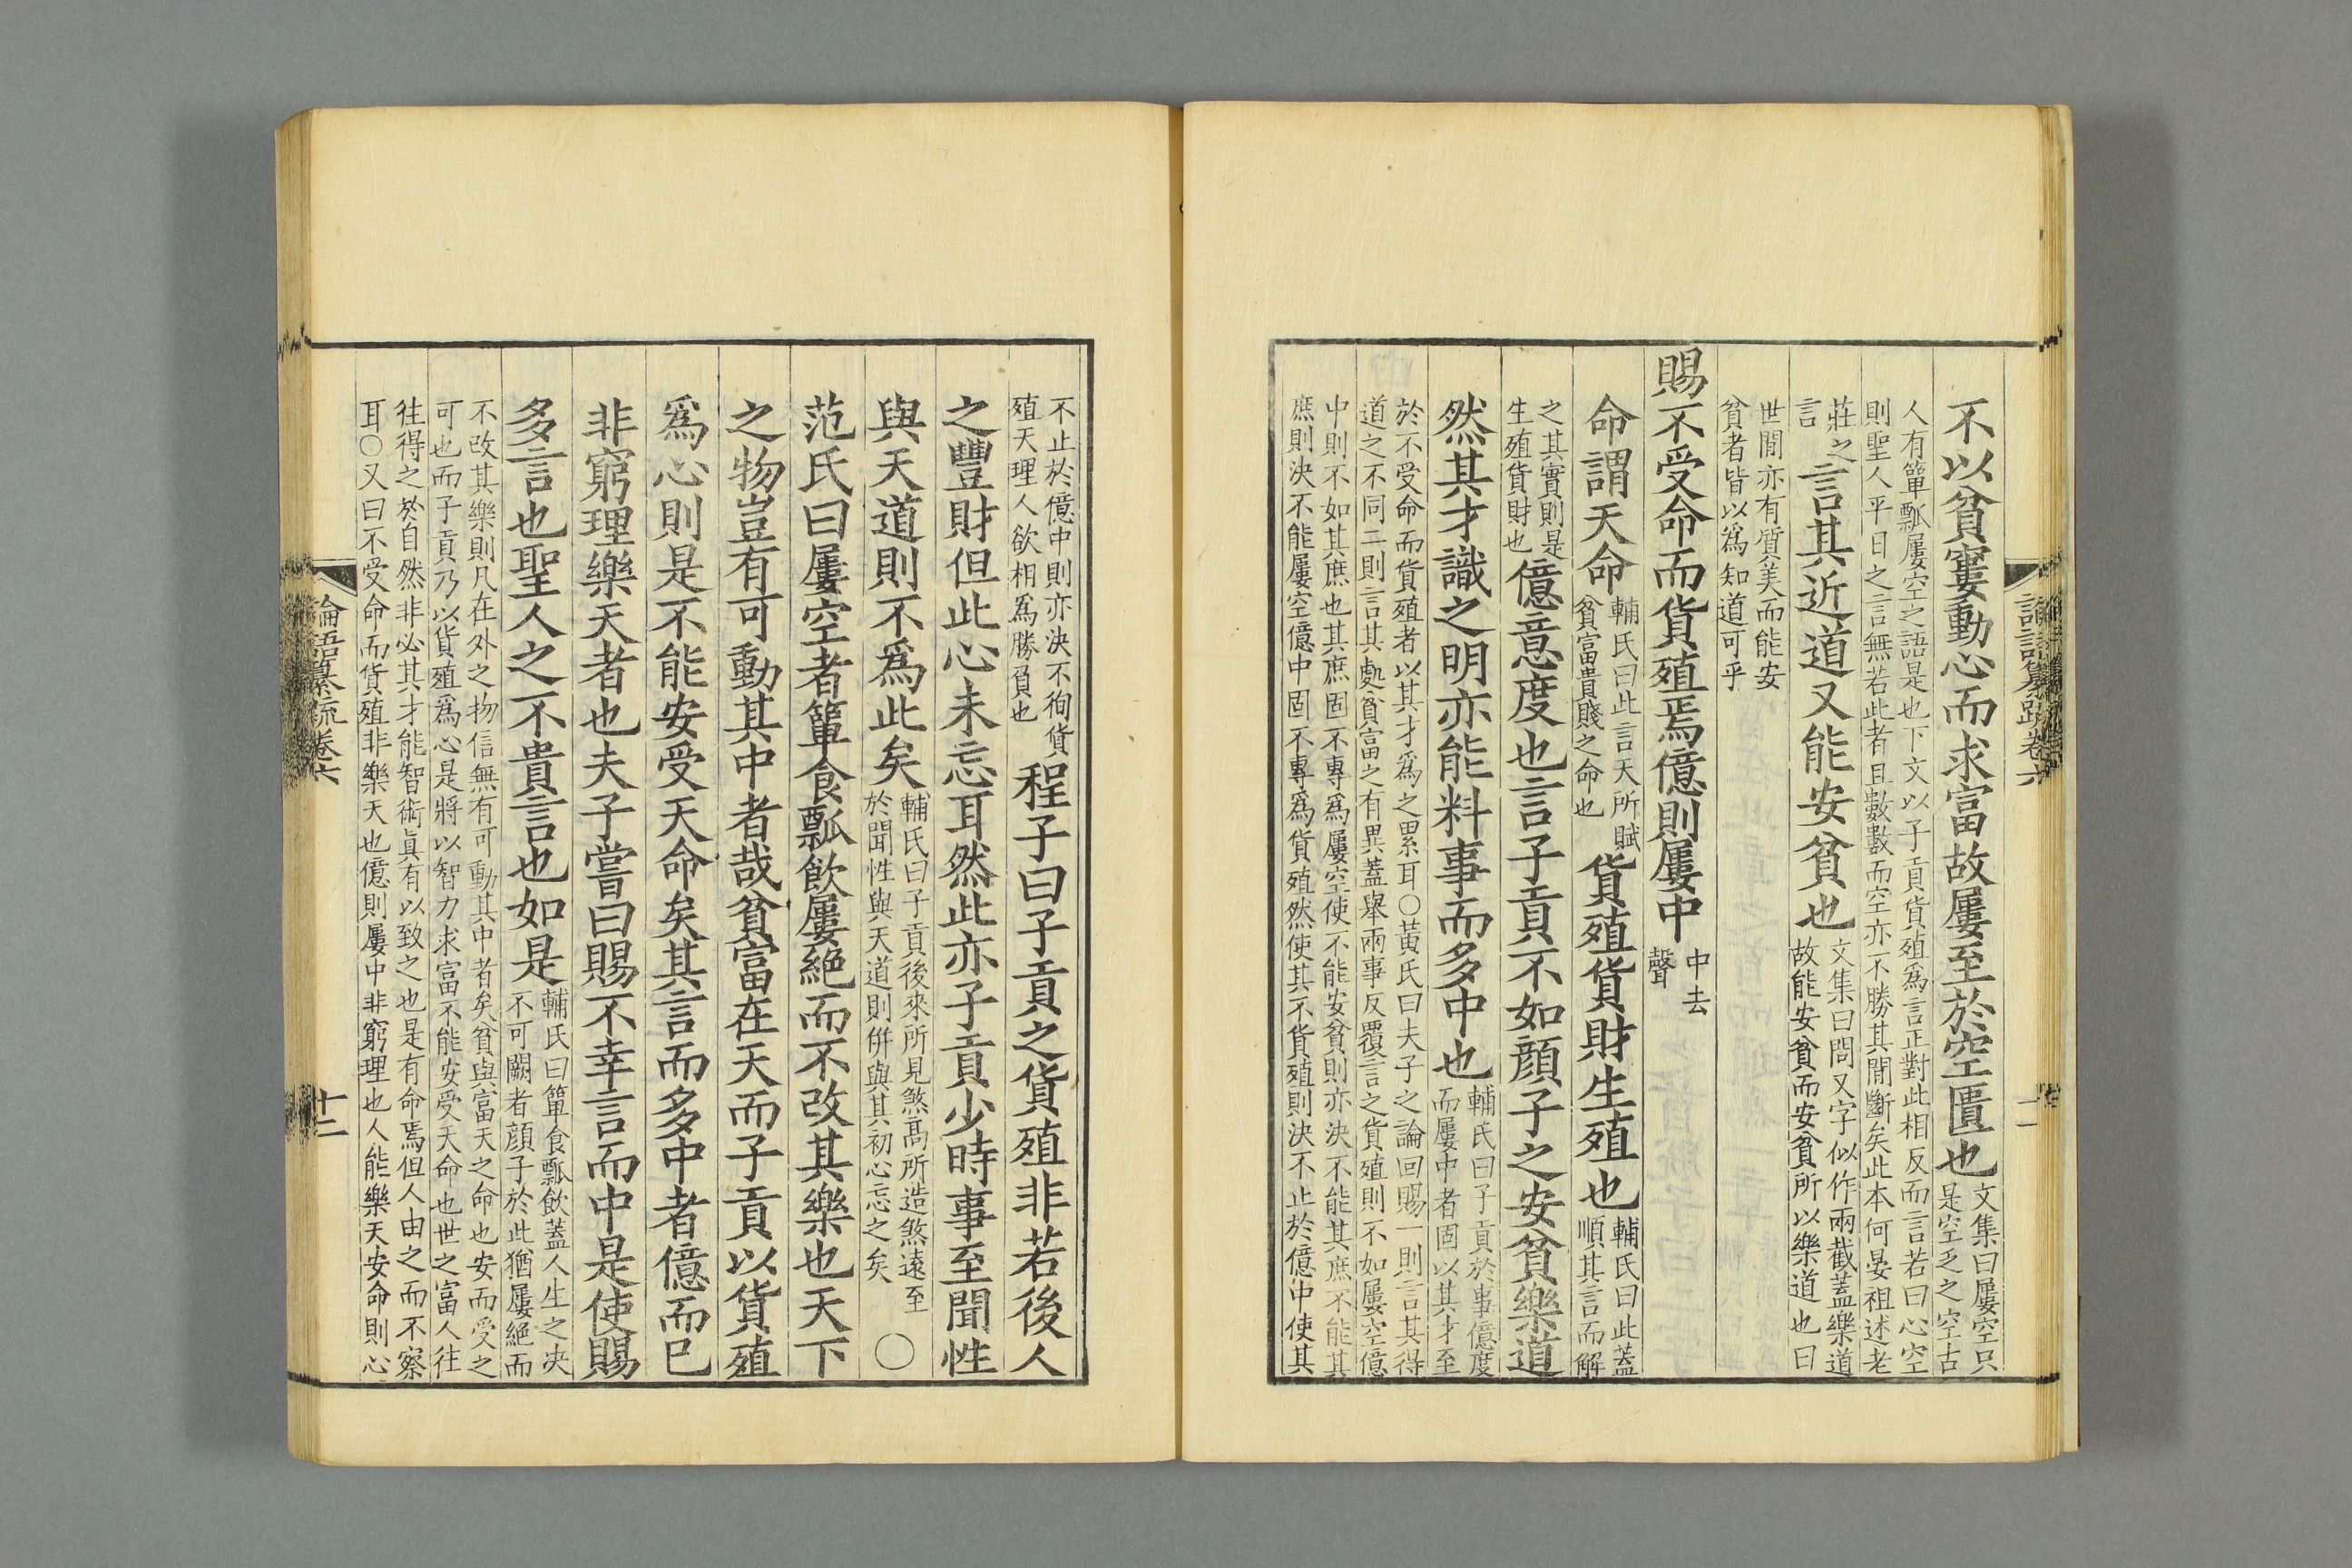 不以貧窶動心而求富故屢至於空匱也文集曰屢空只
是空乏之空古
人有簞瓢屢空之語是也下文以子貢貨殖爲言正對此相反而言若曰心空
則聖人平日之言無若此者且數數而空亦不勝其間斷矣此本何晏祖述老
莊之
言言其近道又能安貧也文集曰問又字似作兩截蓋樂道
故能安貧而安貧所以樂道也曰
世間亦有質美而能安
貧者皆以爲知道可乎
賜不受命而貨殖焉億則屢中中去
聲
命謂天命輔氏曰此言天所賦
貧富貴賤之命也貨殖貨財生殖也輔氏曰此蓋
順其言而解
之其實則是
生殖貨財也億意度也言子貢不如顔子之安貧樂道
然其才識之明亦能料事而多中也輔氏曰子貢於事億度
而屢中者固以其才至
於不受命而貨殖者以其才爲之累耳○黃氏曰夫子之論回賜一則言其得
道之不同二則言其處貧富之有異蓋舉兩事反覆言之貨殖則不如屢空億
中則不如其庶也其庶固不專爲屢空使不能安貧則亦決不能其庶不能其
庶則決不能屢空億中固不專爲貨殖然使其不貨殖則決不止於億中使其
論語纂疏卷六
十一
不止於億中則亦決不徇貨
殖天理人欲相爲勝負也程子曰子貢之貨殖非若後人
之豐財但此心未忘耳然此亦子貢少時事至聞性
與天道則不爲此矣輔氏曰子貢後來所見煞高所造煞遠至
於聞性與天道則倂與其初心忘之矣○
范氏曰屢空者簞食瓢飮屢絕而不改其樂也天下
之物豈有可動其中者哉貧富在天而子貢以貨殖
爲心則是不能安受天命矣其言而多中者億而已
非窮理樂天者也夫子嘗曰賜不幸言而中是使賜
多言也聖人之不貴言也如是輔氏曰簞食瓢飮蓋人生之決
不可闕者顔子於此猶屢絕而
不改其樂則凡在外之物信無有可動其中者矣貧與富天之命也安而受之
可也而子貢乃以貨殖爲心是將以智力求富不能安受天命也世之富人往
往得之於自然非必其才能智術眞有以致之也是有命焉但人由之而不察
耳○又曰不受命而貨殖非樂天也億則屢中非窮理也人能樂天安命則心
論語纂疏卷六
十二